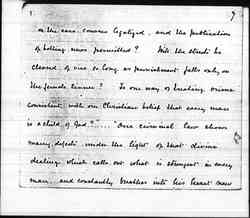 9
on the race-courses legalized, and the publication
of betting news permitted? Will the streets be
cleared of vice so long as punishment falls only on
the female sinner? Is our way of treating crime
consistent with our Christian belief that every man
is a child of God? ...." Our criminal law shows
many defects under the light of that divine
dealing which calls out what is strongest in every
man, and constantly breathes into his heart new